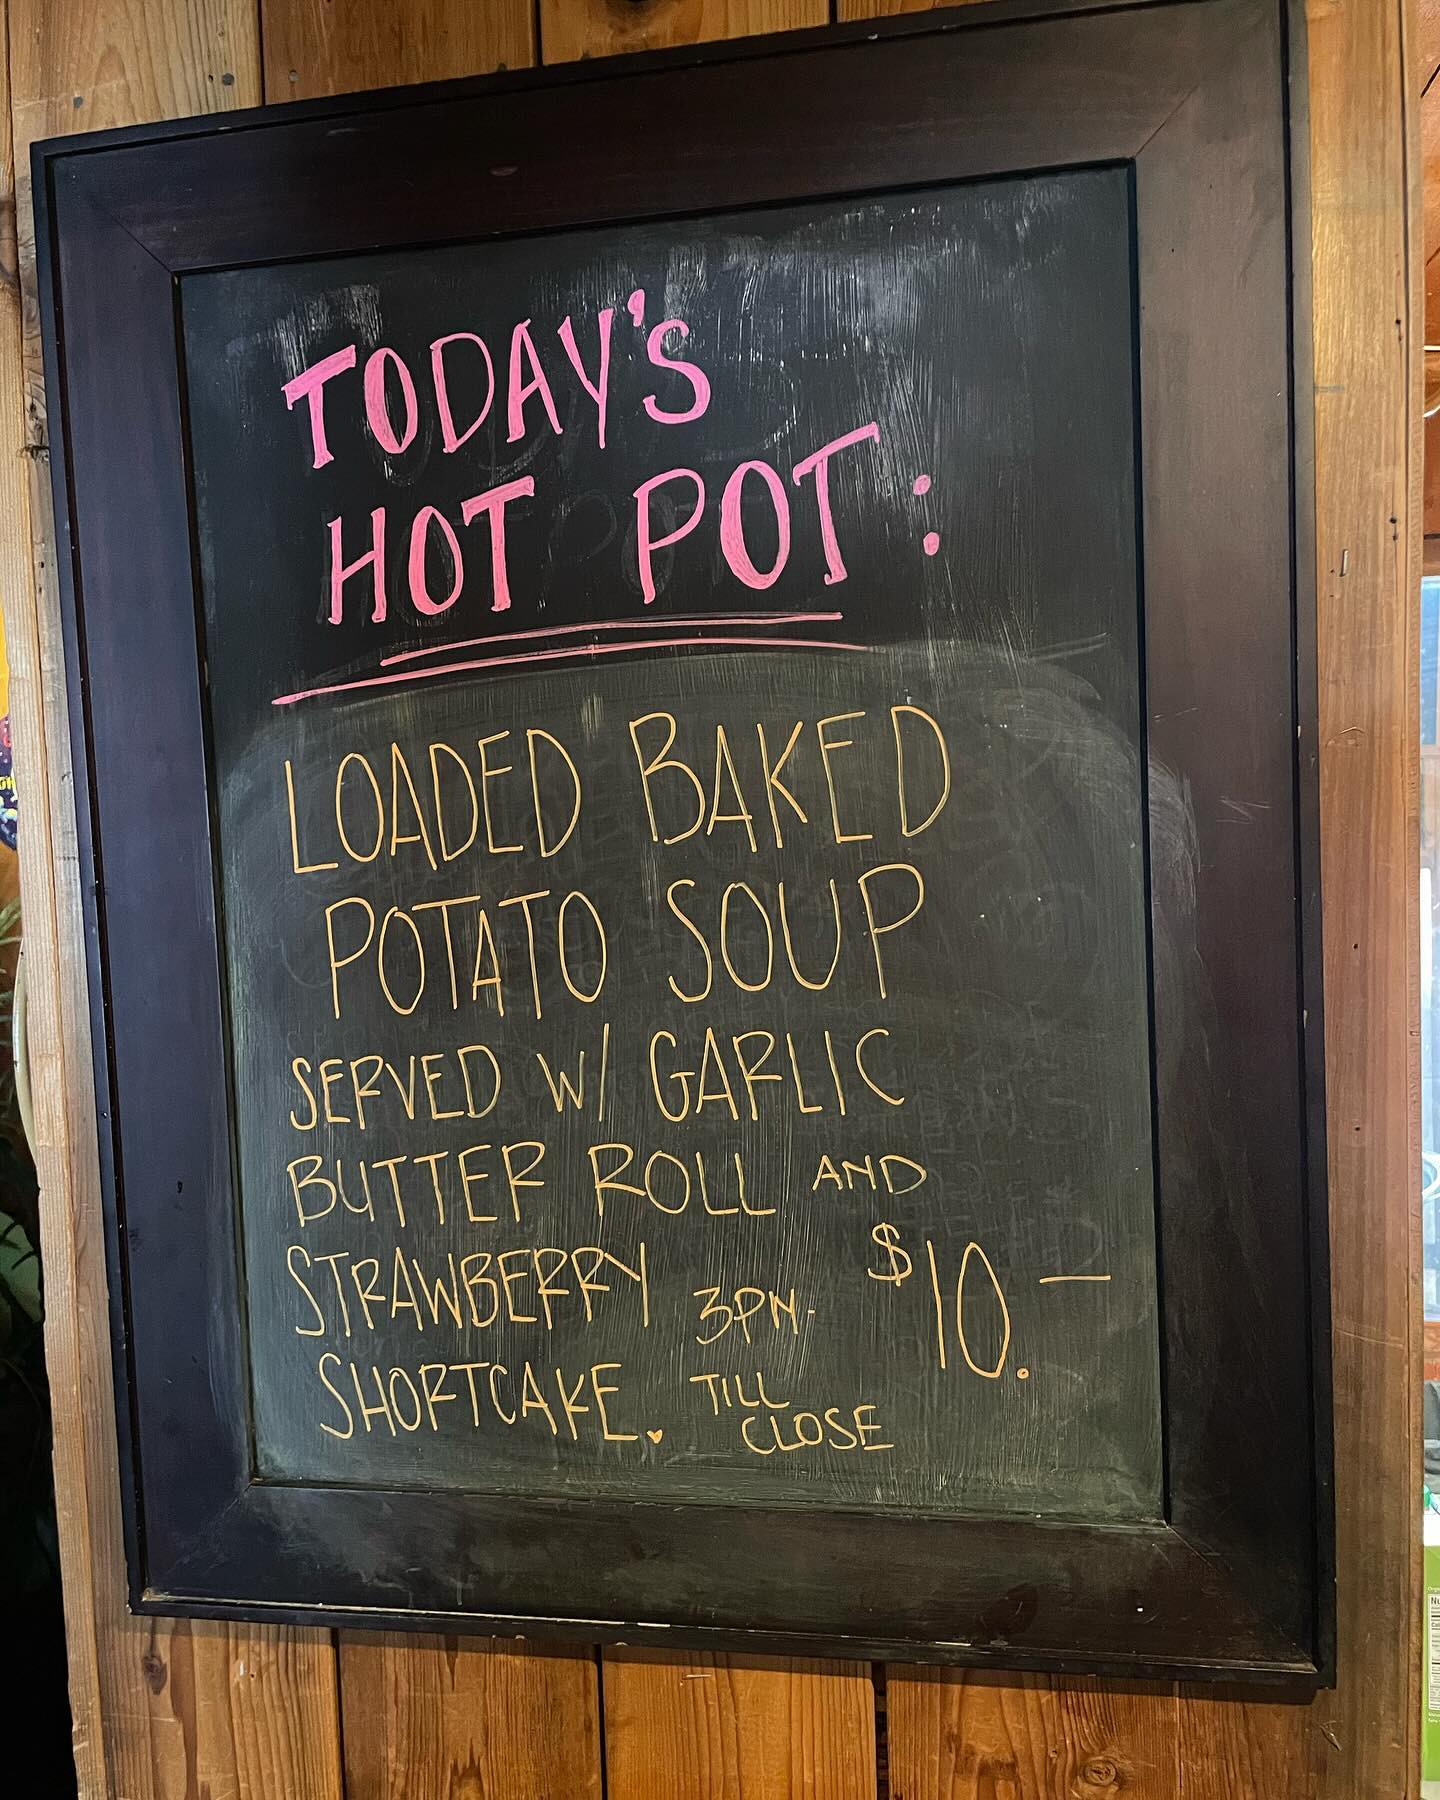 TODAY'S
HOT POT:
LOADED BAKED
POTATO SOUP
SERVED W/ GARLIC
BUTTER ROLL AND
STRAWBERRY
SHORTCAKE.
3PM-
TILL
CLOSE
$10.—